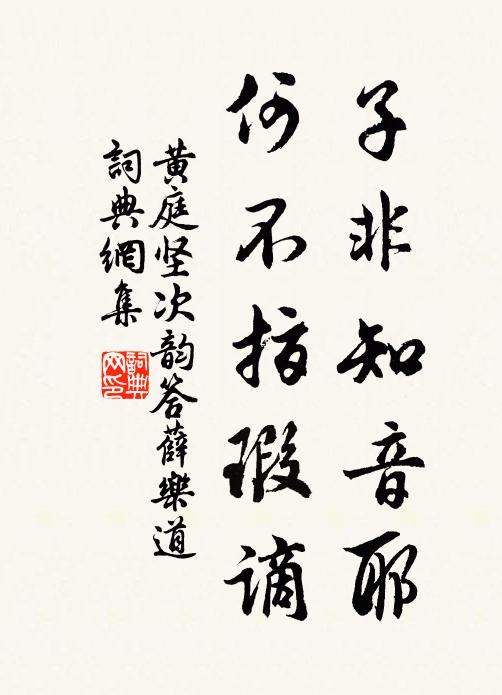 子非知音耶
何不指瑕谪
黄庭坚次韵答薛樂道
詞典網集
詞典网印